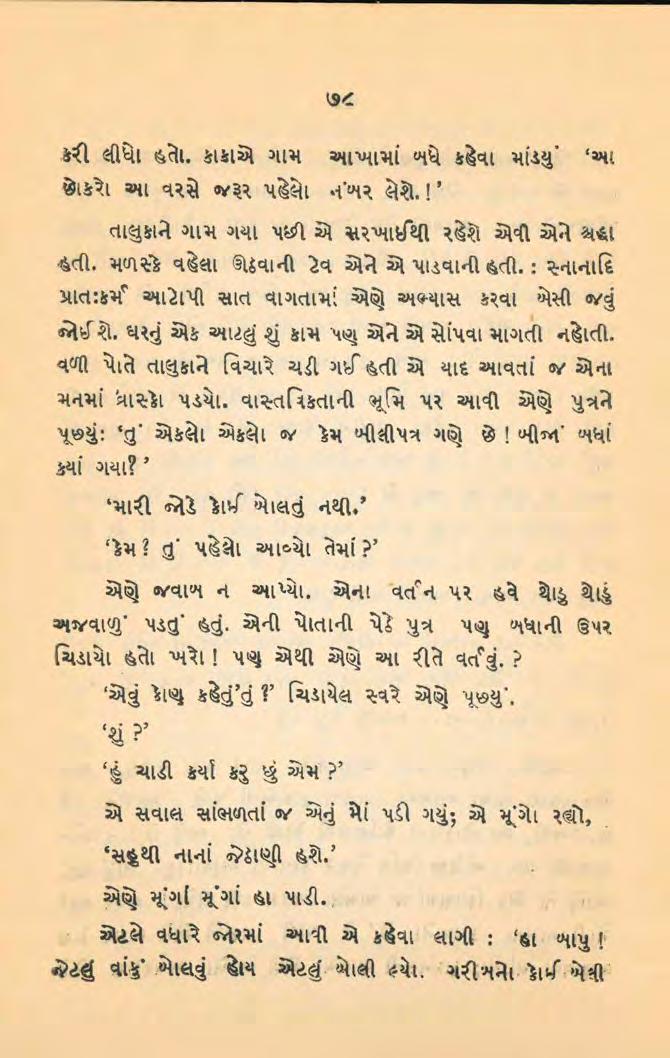 ૭૮
કરી લીધો હતો. કાકાએ ગામ આખામાં બધે કહેવા માંડયું ‘આ
છોકરો આ વરસે જરૂર પહેલો નંબર લેશે.!’
તાલુકાને ગામ ગયા પછી એ સરખાઈથી રહેશે એવી એને શ્રદ્ધા
હતી. મળસ્કે વહેલા ઊઠવાની ટેવ એને એ પાડવાની હતી. : સ્નાનાદિ
પ્રાતઃકર્મ આટોપી સાત વાગતામાં એણે અભ્યાસ કરવા બેસી જવું
જોઈશે. ઘરનું એક આટલું શું કામ પણ એને એ સોંપવા માગતી નહોતી.
વળી પોતે તાલુકાને વિચારે ચડી ગઈ હતી એ યાદ આવતાં જ એના
મનમાં ત્રાસ્કો પડયો. વાસ્તવિકતાની ભૂમિ પર આવી એણે પુત્રને
પૂછયું: ‘તું એકલો એકલો જ કેમ બીલીપત્ર ગણે છે ! બીજાં બધાં
કયાં ગયા?’
‘મારી જોડે કોઈ બોલતું નથી.’
‘કેમ? તું પહેલો આવ્યો તેમાં?’
એણે જવાબ ન આપ્યો. એના વર્તન પર હવે થોડુ થોડું
અજવાળું પડતું હતું. એની પોતાની પેઠે પુત્ર પણ બધાની ઉપર
ચિડાયો હતો ખરો! પણ એથી એણે આ રીતે વર્તવું. ?
‘એવું કોણ કહેતું’તું ?’ ચિડાયેલ સ્વરે એણે પૂછયું.
‘શું ?’
‘હું ચાડી કર્યા કરુ છું એમ ?’
એ સવાલ સાંભળતાં જ એનું મોં પડી ગયું; એ મૂંગો રહ્યો,
‘સહુથી નાનાં જેઠાણી હશે.’
એણે મૂંગાં મૂંગાં હા પાડી.
એટલે વધારે જોરમાં આવી એ કહેવા લાગી : ‘હા બાપુ !
જેટલું વાંકું બોલવું હોય એટલું બોલી લ્યો. ગરીબનો કોઈ બેલી